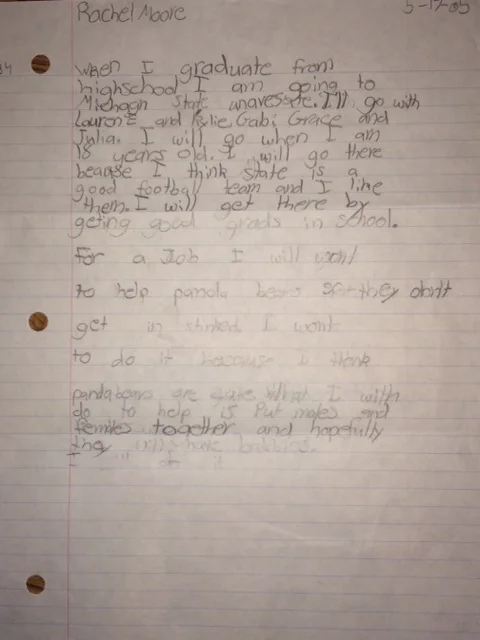 Rachel Moore 5-17-05
when I graduate from
highschool I am going to
Michagn State unavessete. I'll go with
Lauren E and Kylie, Gabi, Grace and
Julia. I will go when I am
18 years old. I will go there
beause I think state is a
good football team and I like
them. I will get there by
geting good grads in school.
For a Job I will wont
to help panda bears so they don't
get in stinked. I wont
to do it because I think
panda bears are cute. What I will
do to help is Put males and
females together and hopefully
they will have babbies.
I